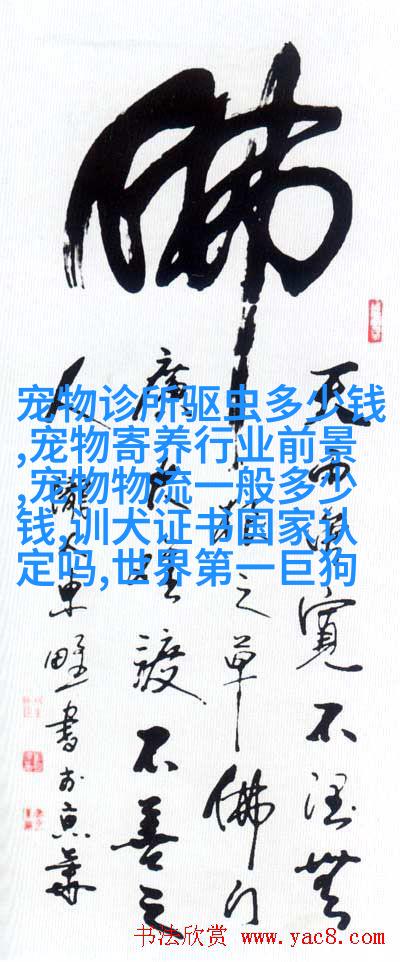 佛
天雨寬不潤無
根之草佛门
廣大渡不善之
人隴人東野書於京華
宠物诊所驱虫多少钱
,宠物寄养行业前景
,宠物物流一般多少
钱,训犬证书国家认
定吗,世界第一巨狗
书法欣赏 www.yac8.com